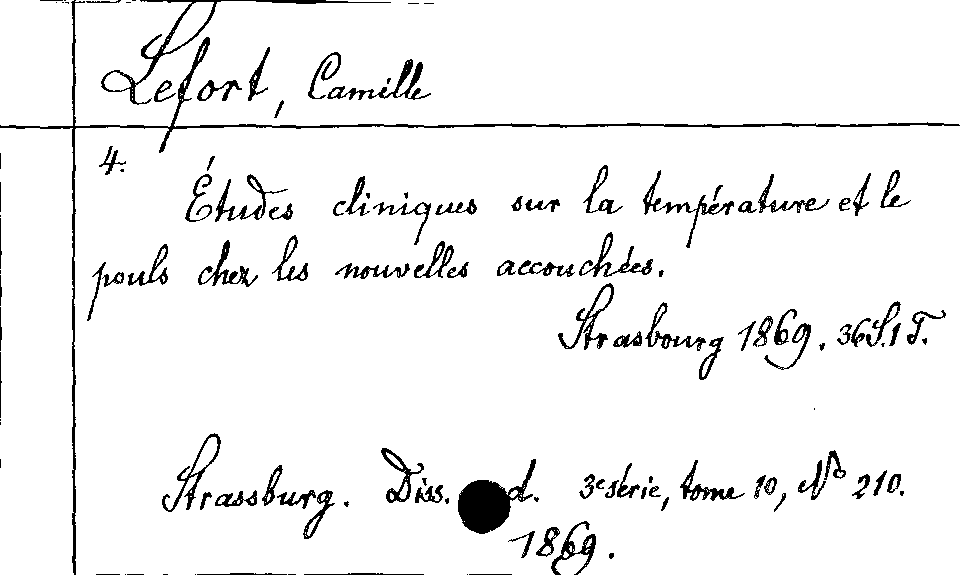 Lefort, Camille
4.
Études cliniques sur la température et le
pouls chez les nouvelles accouchées.
Strasbourg 1869. 36S.1T.
Strassburg. Diss. d. 3e série, tome 10, No 210.
1869.